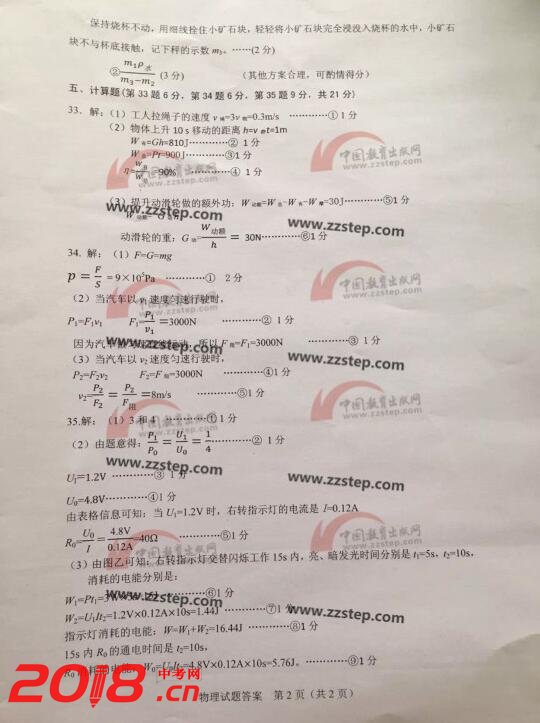 保持烧杯不动，用细线拴住小矿石块，轻轻将小矿石块完全浸没入烧杯的水中，小矿石
块不与杯底接触，记下秤的示数 m₃。……(2 分)
②m₁ρ水/(m₃−m₂) (3 分) (其他方案合理，可酌情得分)
五、计算题(第 33 题 6 分，第 34 题 6 分，第 35 题 9 分，共 21 分)
33. 解：(1) 工人拉绳子的速度 v绳=3v物=0.3m/s …………① 1 分
(2) 物体上升 10 s 移动的距离 h=v物t=1m
W有=Gh=810J…………② 1 分
W总=Pt=900J…………③1 分
η=W有/W总=90% …………④ 1 分
(3) 提升动滑轮做的额外功：W动额=W总-W有-W摩=30J…………⑤1 分
动滑轮的重：G动=W动额/h= 30N…………⑥1 分
34. 解：(1) F=G=mg
p=F/S=9×10⁵Pa …………① 2 分
(2) 当汽车以 v₁ 速度匀速行驶时，
P₁=F₁v₁ F₁=P₁/v₁=3000N …………② 1 分
因为汽车 所以 F阻=F₁=3000N …………③ 1 分
(3) 当汽车以 v₂ 速度匀速行驶时，
P₂=F₂v₂ F₂=F阻=3000N …………④1 分
v₂=P₂/F₂=P₂/F阻=8m/s …………⑤1 分
35.解：(1) 3 和 4 …………① 1 分
(2) 由题意得：P₁/P₀=U₁/U₀=1/4 …………② 1 分
U₁=1.2V …………③ 1 分
U₀=4.8V…………④1 分
由表格信息可知：当 U₁=1.2V 时，右转指示灯的电流是 I=0.12A
R₀=U₀/I=4.8V/0.12A=40Ω …………⑤1 分
(3) 由图乙可知：右转指示灯交替闪烁工作 15s 内，亮、暗发光时间分别是 t₁=5s，t₂=10s，
消耗的电能分别是：
W₁=Pt₁=3W
W₂=U₁It₂=1.2V×0.12A×10s=1.44J …………⑦1 分
指示灯消耗的电能：W=W₁+W₂=16.44J …………⑧1 分
15s 内 R₀ 的通电时间是 t₂=10s，
R₀ 消耗的电能：W₀=U₀It₂=4.8V×0.12A×10s=5.76J。…………⑨1 分
物理试题答案 第 2 页（共 2 页）
中国教育出版网
www.zzstep.com
中国教育出版网
www.zzstep.com
中国教育出版网
www.zzstep.com
中国教育出版网
www.zzstep.com
中国教育出版网
www.zzstep.com
2018中考网.cn